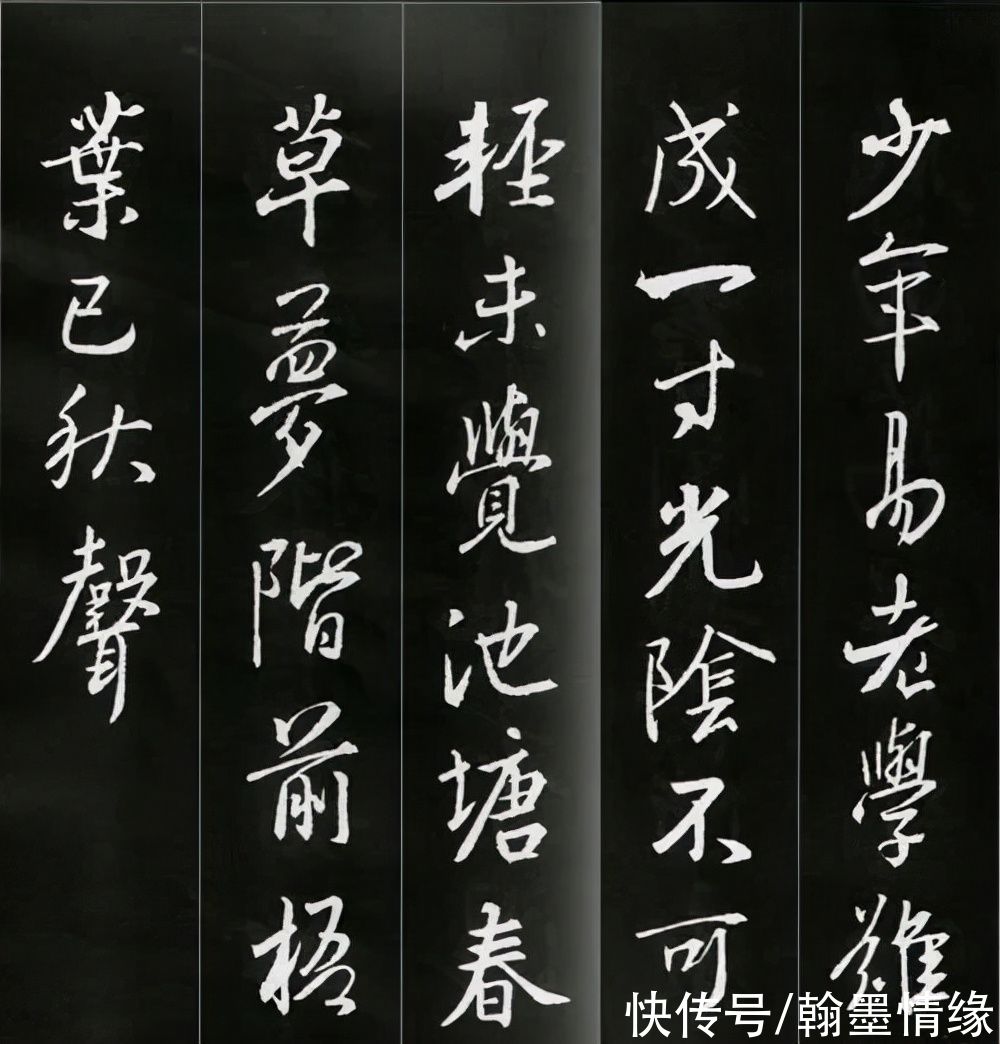 少年易老學難
成一寸光陰不可
輕未覺池塘春
草夢階前梧
葉已秋聲
快传号/翰墨情缘